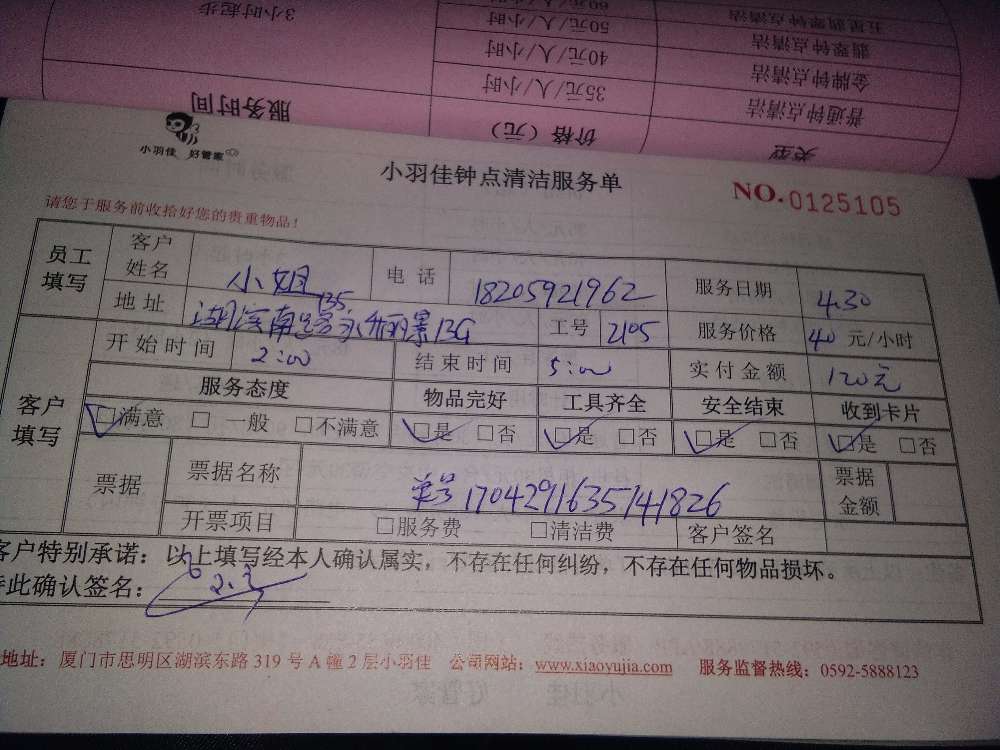 60元/人/小时
五星翡翠钟点清洁
50元/人/小时
翡翠钟点清洁
3小时起步
40元/人/小时
金牌钟点清洁
35元/人/小时
普通钟点清洁
服务时间
价格(元)
类型
小羽佳 好管家
小羽佳钟点清洁服务单
NO.0125105
请您于服务前收拾好您的贵重物品!
员工填写
客户姓名 小姐 电话 18205921962 服务日期 4.30
地址 湖滨南路 135 丽景13G 工号 2105 服务价格 40 元/小时
开始时间 2:00 结束时间 5:00 实付金额 120元
客户填写
服务态度 物品完好 工具齐全 安全结束 收到卡片
☑满意 □一般 □不满意 ☑是 □否 ☑是 □否 ☑是 □否 ☑是 □否
票据 票据名称 单号17042911635741826 票据金额
开票项目 □服务费 □清洁费 客户签名
客户特别承诺:以上填写经本人确认属实,不存在任何纠纷,不存在任何物品损坏。
特此确认签名:
地址:厦门市思明区湖滨东路319号A幢2层小羽佳 公司网站:www.xiaoyujia.com 服务监督热线:0592-5888123